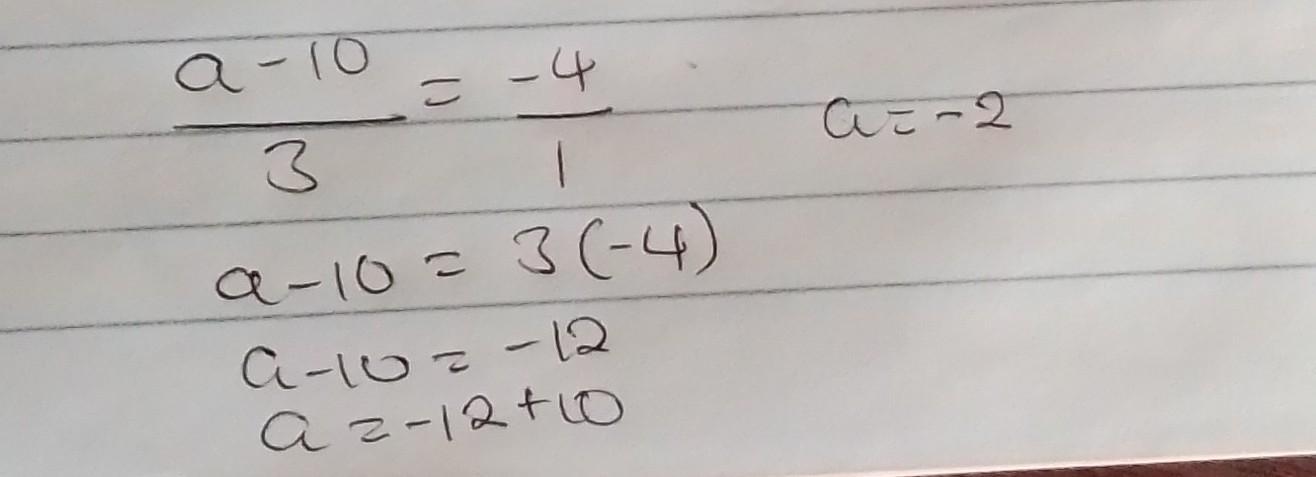 a-10/3 = -4/1
a-10 = 3(-4)
a-10 = -12
a = -12+10
a = -2